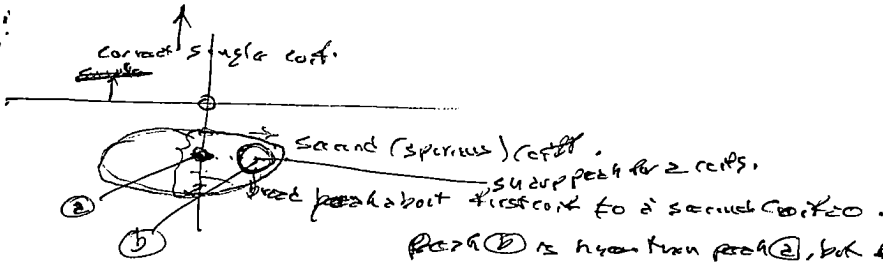 correct single coef.
second (spurious) coeff.
sharp peak for 2 coefs.
broad peak about first coef to a second coef = 0.
a
b
Peak b is higher than peak a, but